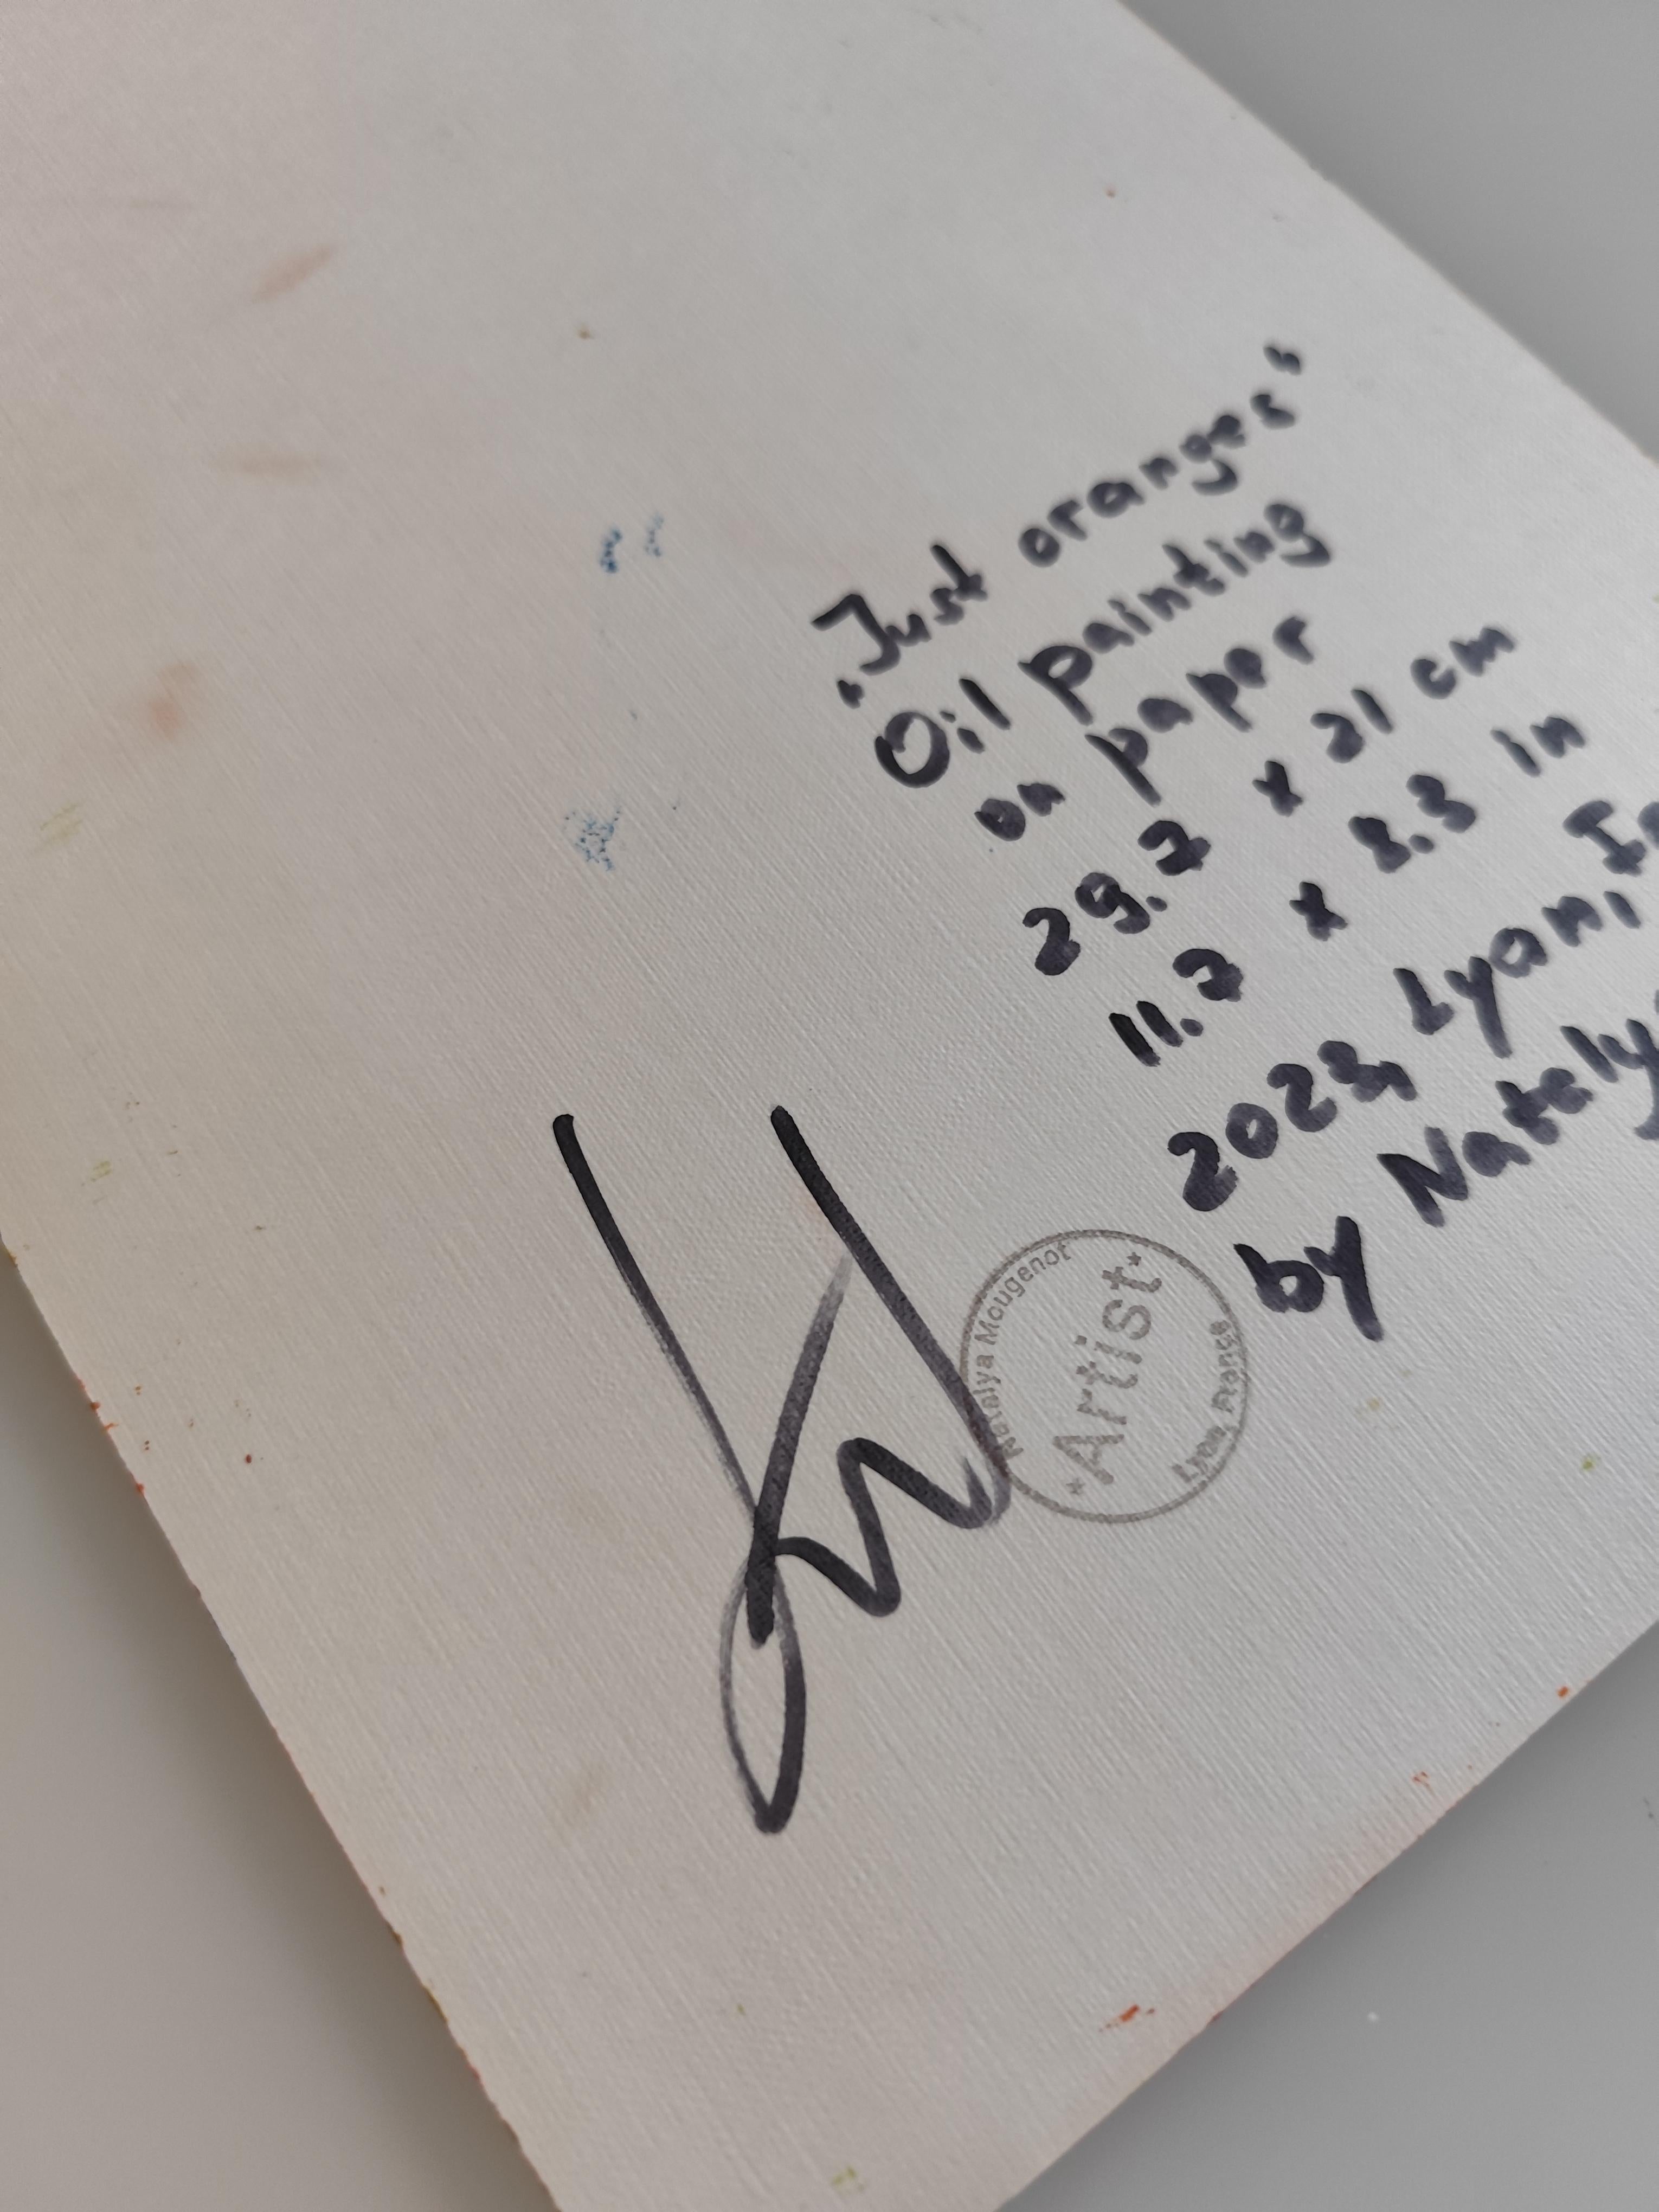 „Just oranges"
Oil painting
on paper
29.7 x 21 cm
11.7 x 8.3 in
2023, Lyon,
by
Natalya Mougenot
*Artist*
Lyon, France